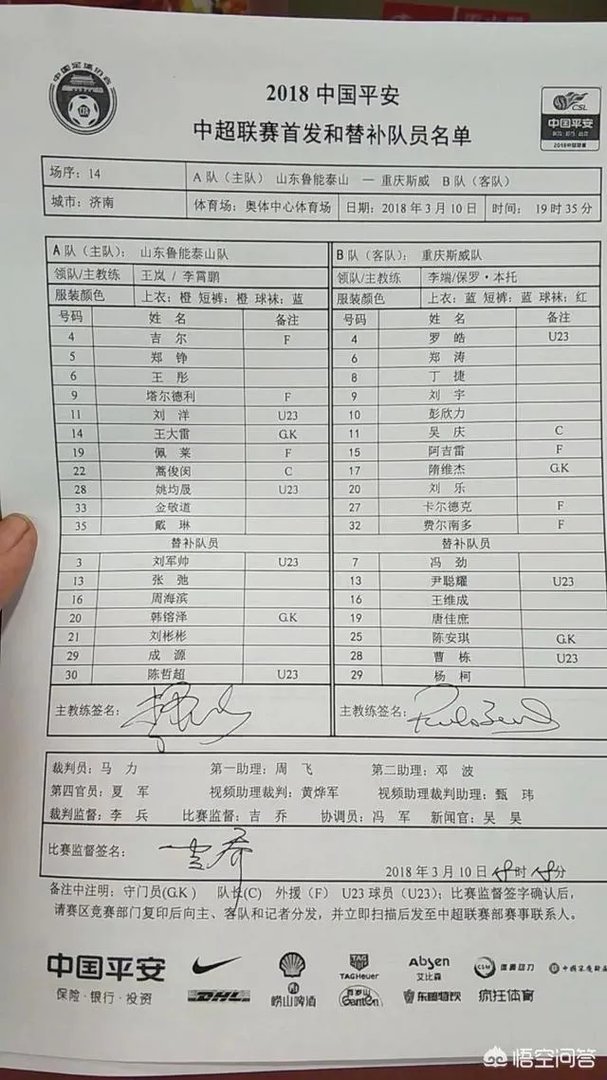 中国足球协会
CSL
中国平安
2018中超联赛
2018 中国平安
中超联赛首发和替补队员名单
场序：14 A 队（主队） 山东鲁能泰山 — 重庆斯威 B 队（客队）
城市：济南 体育场：奥体中心体育场 日期：2018 年 3 月 10 日 时间： 19 时 35 分
A 队（主队）： 山东鲁能泰山队
领队/主教练 王岚 / 李霄鹏
服装颜色 上衣：橙 短裤：橙 球袜：蓝
号码 姓 名 备注
4 吉 尔 F
5 郑 铮
6 王 彤
9 塔尔德利 F
11 刘 洋 U23
14 王大雷 G.K
19 佩 莱 F
22 蒿俊闵 C
28 姚均晟 U23
33 金敬道
35 戴 琳
替补队员
3 刘军帅 U23
13 张 弛
16 周海滨
20 韩镕泽 G.K
21 刘彬彬
29 成 源
30 陈哲超 U23
主教练签名：
B 队（客队）： 重庆斯威队
领队/主教练 李端/保罗·本托
服装颜色 上衣：蓝 短裤：蓝 球袜：红
号码 姓 名 备注
4 罗 皓 U23
6 郑 涛
8 丁 捷
9 刘 宇
10 彭欣力
11 吴 庆 C
15 阿吉雷 F
17 隋维杰 G.K
20 刘 乐
27 卡尔德克 F
32 费尔南多 F
替补队员
7 冯 劲
13 尹聪耀 U23
16 王维成
19 唐佳庶
25 陈安琪 G.K
28 曹 栋 U23
29 杨 柯
主教练签名：
裁判员：马 力 第一助理：周 飞 第二助理：邓 波
第四官员：夏 军 视频助理裁判：黄烨军 视频助理裁判助理：甄 玮
裁判监督：李 兵 比赛监督：吉 乔 协调员：冯 军 新闻官：吴 昊
比赛监督签名： 吉乔
2018 年 3 月 10 日 18 时 18 分
备注中注明：守门员(G.K ) 队长(C) 外援（F） U23 球员（U23）；比赛监督签字确认后，
请赛区竞赛部门复印后向主、客队和记者分发，并立即扫描后发至中超联赛部赛事联系人。
中国平安
保险·银行·投资
DHL
崂山啤酒
TAGHeuer
百岁山
Ganten
Absen
艾比森
东鹏特饮
疯狂体育
悟空问答